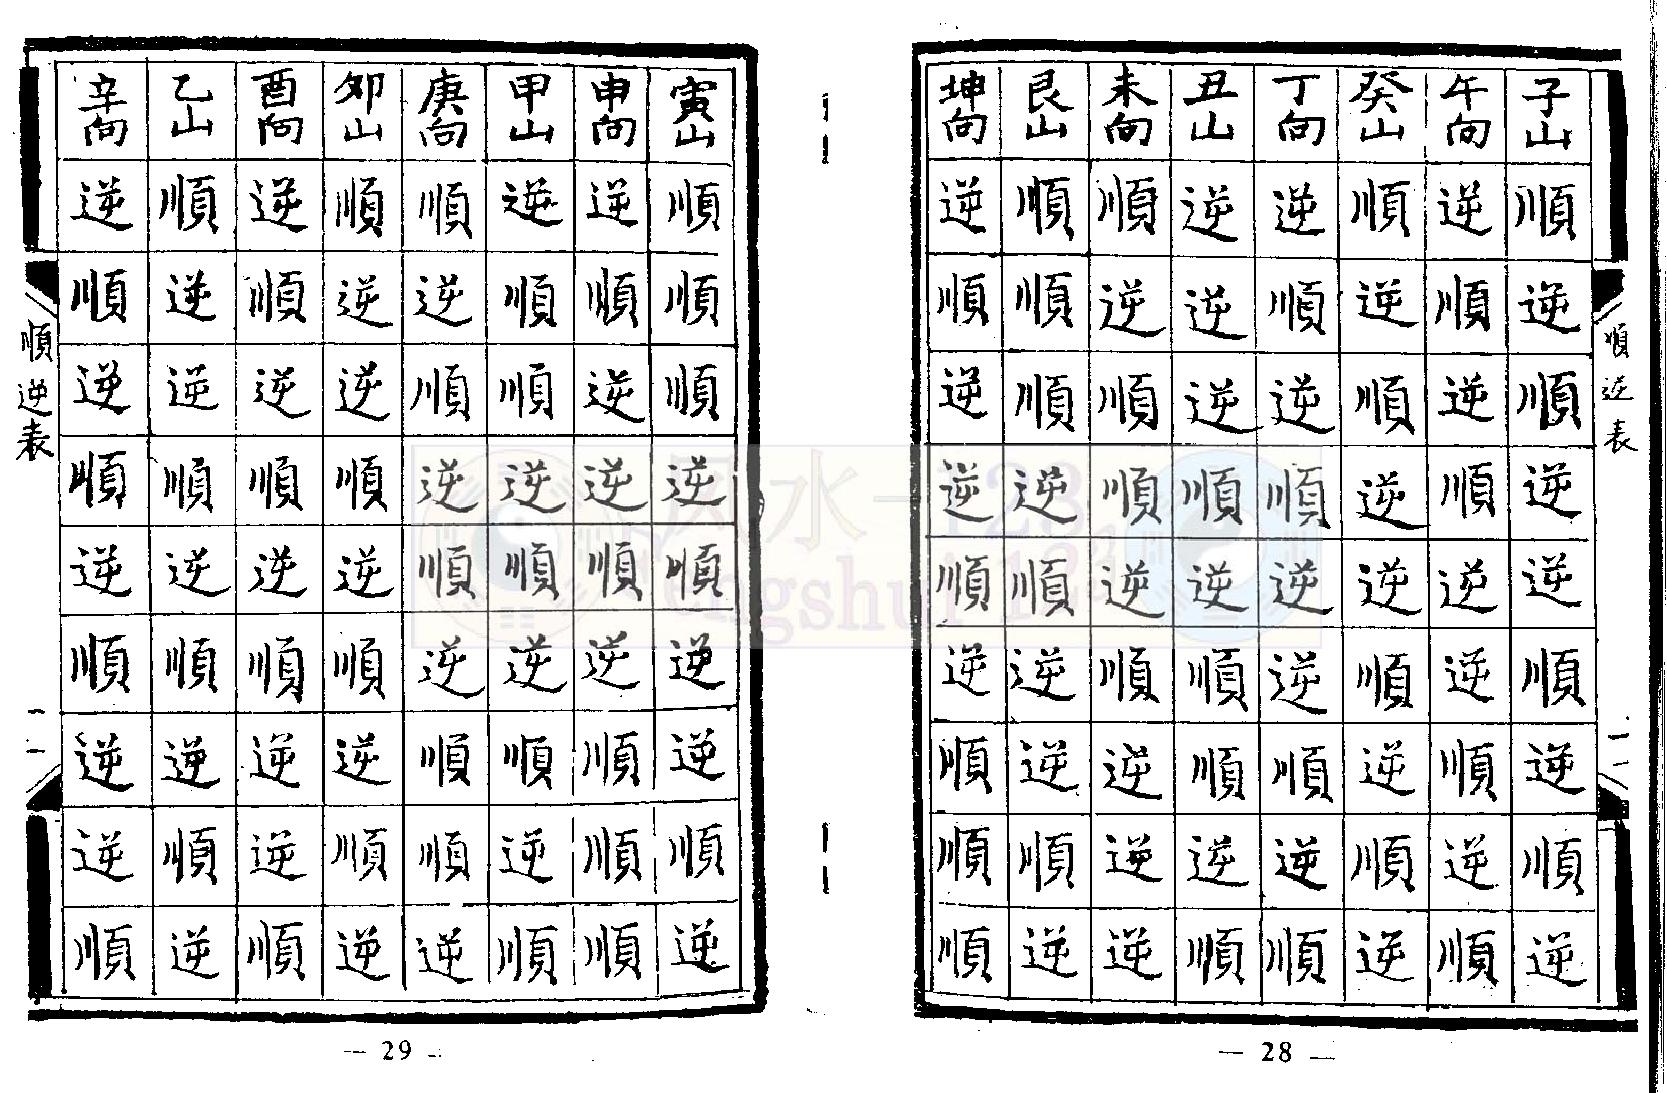 順逆表
一一
子山順逆順逆逆順逆順逆
午向逆順逆順逆逆順逆順
癸山順逆順逆逆順逆順逆
丁向逆順逆順逆逆順逆順
丑山逆逆逆順逆順順逆順
未向順逆順順逆順逆逆逆
艮山順順順逆順逆逆順逆
坤向逆順逆逆順逆順順順
— 28 —
寅山順順順逆順逆逆順逆
申向逆順逆逆順逆順順順
甲山逆順順逆順逆順逆順
庚向順逆順逆順逆順順逆
卯山順逆逆順逆順逆順逆
酉向逆順逆順逆順逆逆順
乙山順逆逆順逆順逆順逆
辛向逆順逆順逆順逆逆順
順逆表
一一
— 29 —